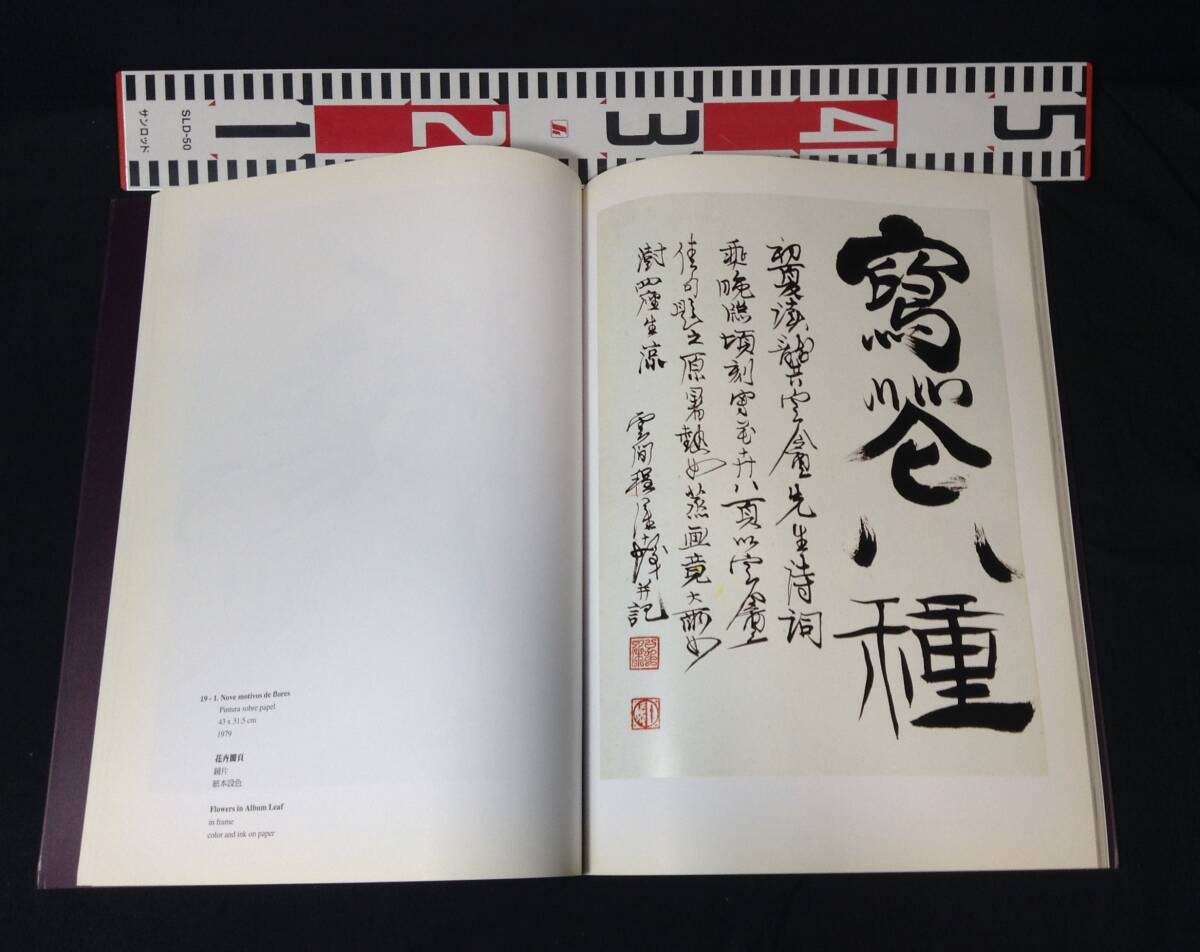 サンロッド
SLD-50
1 2 3 4 5
19 - 1. Nove motivos de flores
Pintura sobre papel
43 x 31.5 cm
1979
花卉冊頁
鏡片
紙本設色
Flowers in Album Leaf
in frame
color and ink on paper
寫花八種
初夏讀龔定盦先生詩詞
乘晚臨頃刻寫花卉八頁以定盦
佳句題之原暑熱如蒸畫竟大雨如
澍四座生涼
雲間程十髮并記